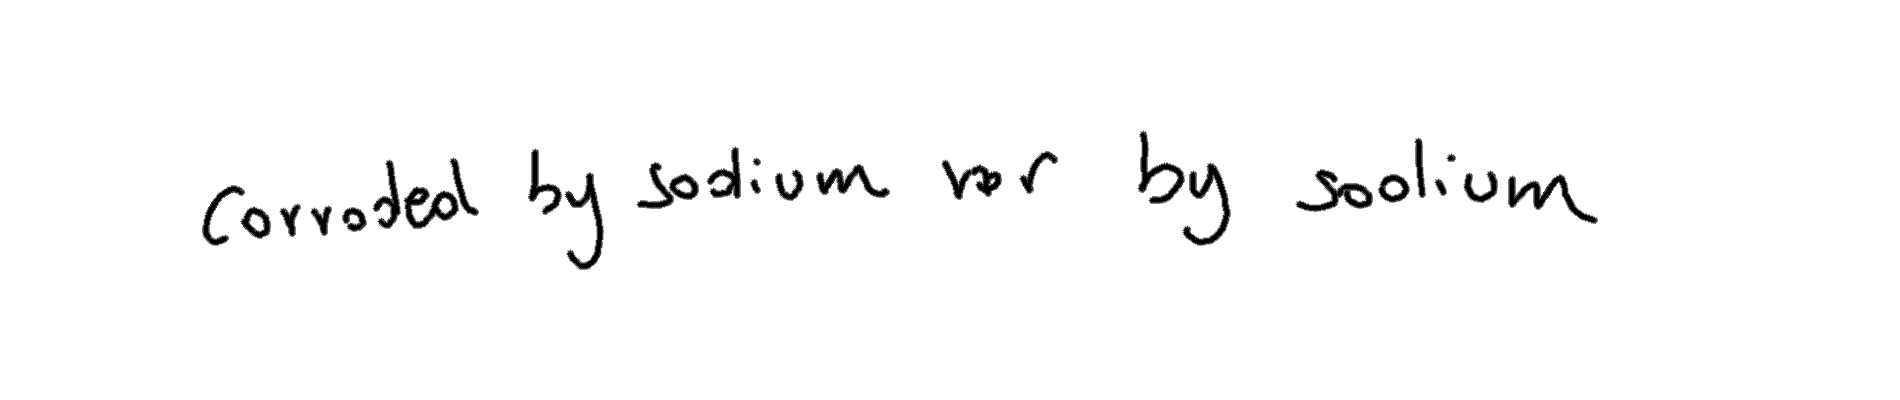 corroded by sodium nor by sodium